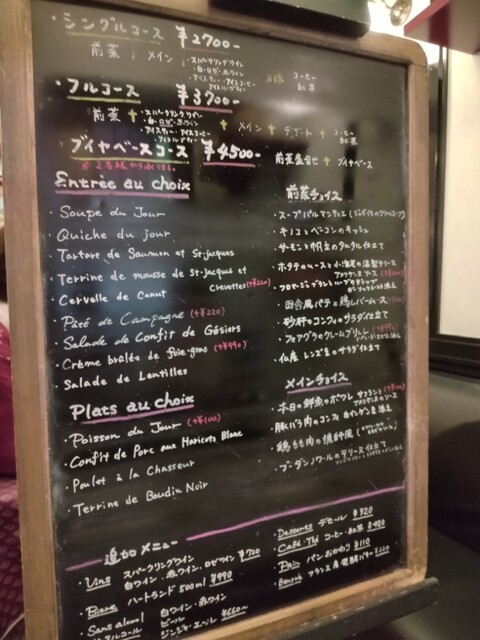 ・シングルコース ¥2700-
前菜 メイン ・スパークリングワイン
・白・ロゼ・赤ワイン
アイスティー・アイスコーヒー
コーヒー
紅茶
・フルコース ¥3700-
前菜 + ・スパークリングワイン + メイン + デザート + コーヒー
・白・ロゼ・赤ワイン
アイスティー・アイスコーヒー
紅茶
ブイヤベースコース ¥4500- 前菜盛合せ + ブイヤベース
※2名様から承ります。
Entrée au choix
・Soupe du Jour
・Quiche du jour
・Tartare de Saumon et St-jacques
・Terrine de mousse de St-jacques et Crevettes (+¥220)
・Cervelle de Canut
・Pâté de Campagne (+¥220)
・Salade de Confit de Gésiers
・Crème brûlée de foie-gras (+¥990)
・Salade de Lentilles
Plats au choix
・Poisson du Jour (+¥100)
・Confit de Porc aux Haricots Blanc
・Poulet à la Chasseur
・Terrine de Boudin Noir
前菜チョイス
・スープパルマンティエ
・キノコとベーコンのキッシュ
・サーモンと帆立のタルタル仕立て
・ホタテのムースと小海老の温製テリーヌ
アメリケーヌソース
・田舎風パテと鶏レバームース
・砂肝のコンフィのサラダ仕立て
・フォアグラのクレームブリュレ
・仏産 レンズ豆のサラダ仕立て
メインチョイス
・本日の鮮魚のポワレ サフランと
アメリケーヌのソース
・豚バラ肉のコンフィ 白インゲン豆添え
・鶏もも肉の猟師風
・ブーダンノワールのテリーヌ仕立て
追加メニュー
・Vins スパークリングワイン
白ワイン・赤ワイン・ロゼワイン ¥720
・Bière ハートランド 500ml ¥990
・Sans alcool 白ワイン・赤ワイン
ノンアルコール ビール
ジンジャーエール ¥660~
・Desserts デセール ¥720
・Café・Thé コーヒー・紅茶
・Pain パンおかわり ¥110
・Beurre フランス産発酵バター